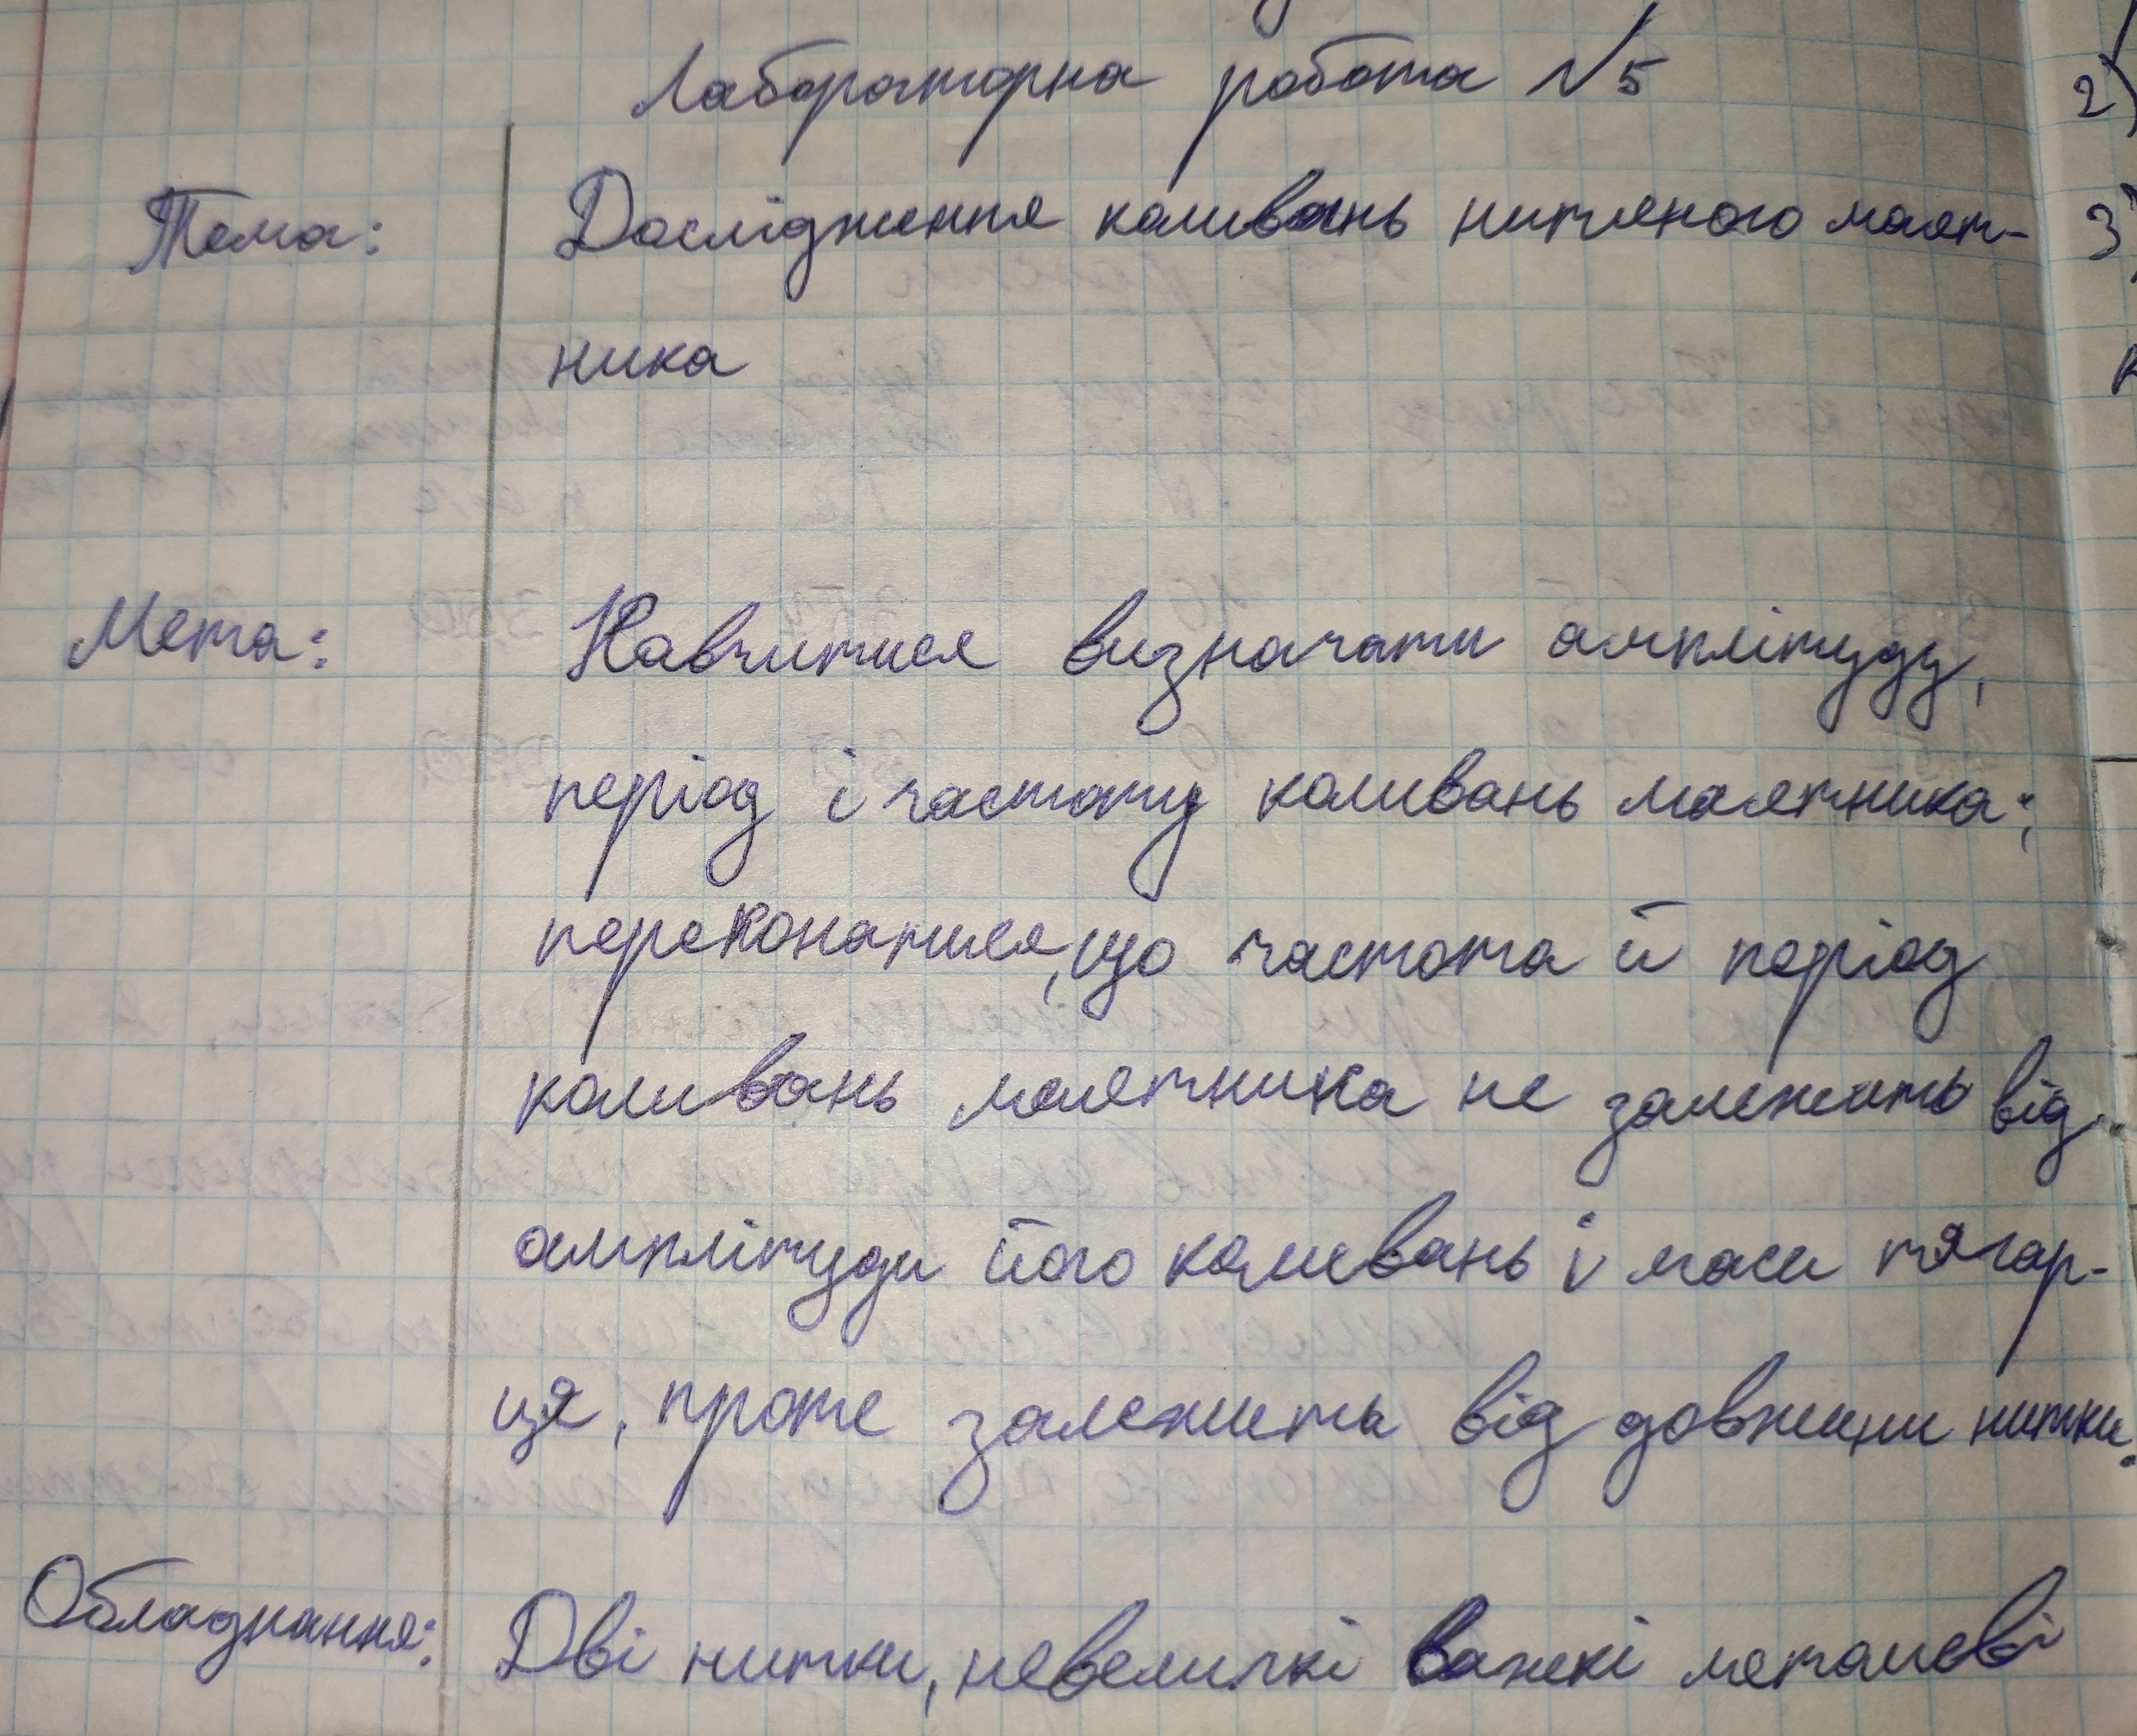 Лабораторна робота №5
Тема: Дослідження коливань нитяного маят-
ника
Мета: Навчитися визначати амплітуду,
період і частоту коливань маятника;
переконатися, що частота й період
коливань маятника не залежить від
амплітуди його коливань і маси тягар-
ця, проте залежить від довжини нитки.
Обладнання: Дві нитки, невеличкі важкі металеві
2)
3)